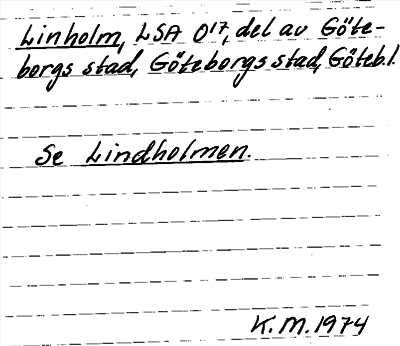 Linholm, LSA O¹⁷, del av Göte-
borgs stad, Göteborgs stad, Göteb.l.
Se Lindholmen.
K.M. 1974